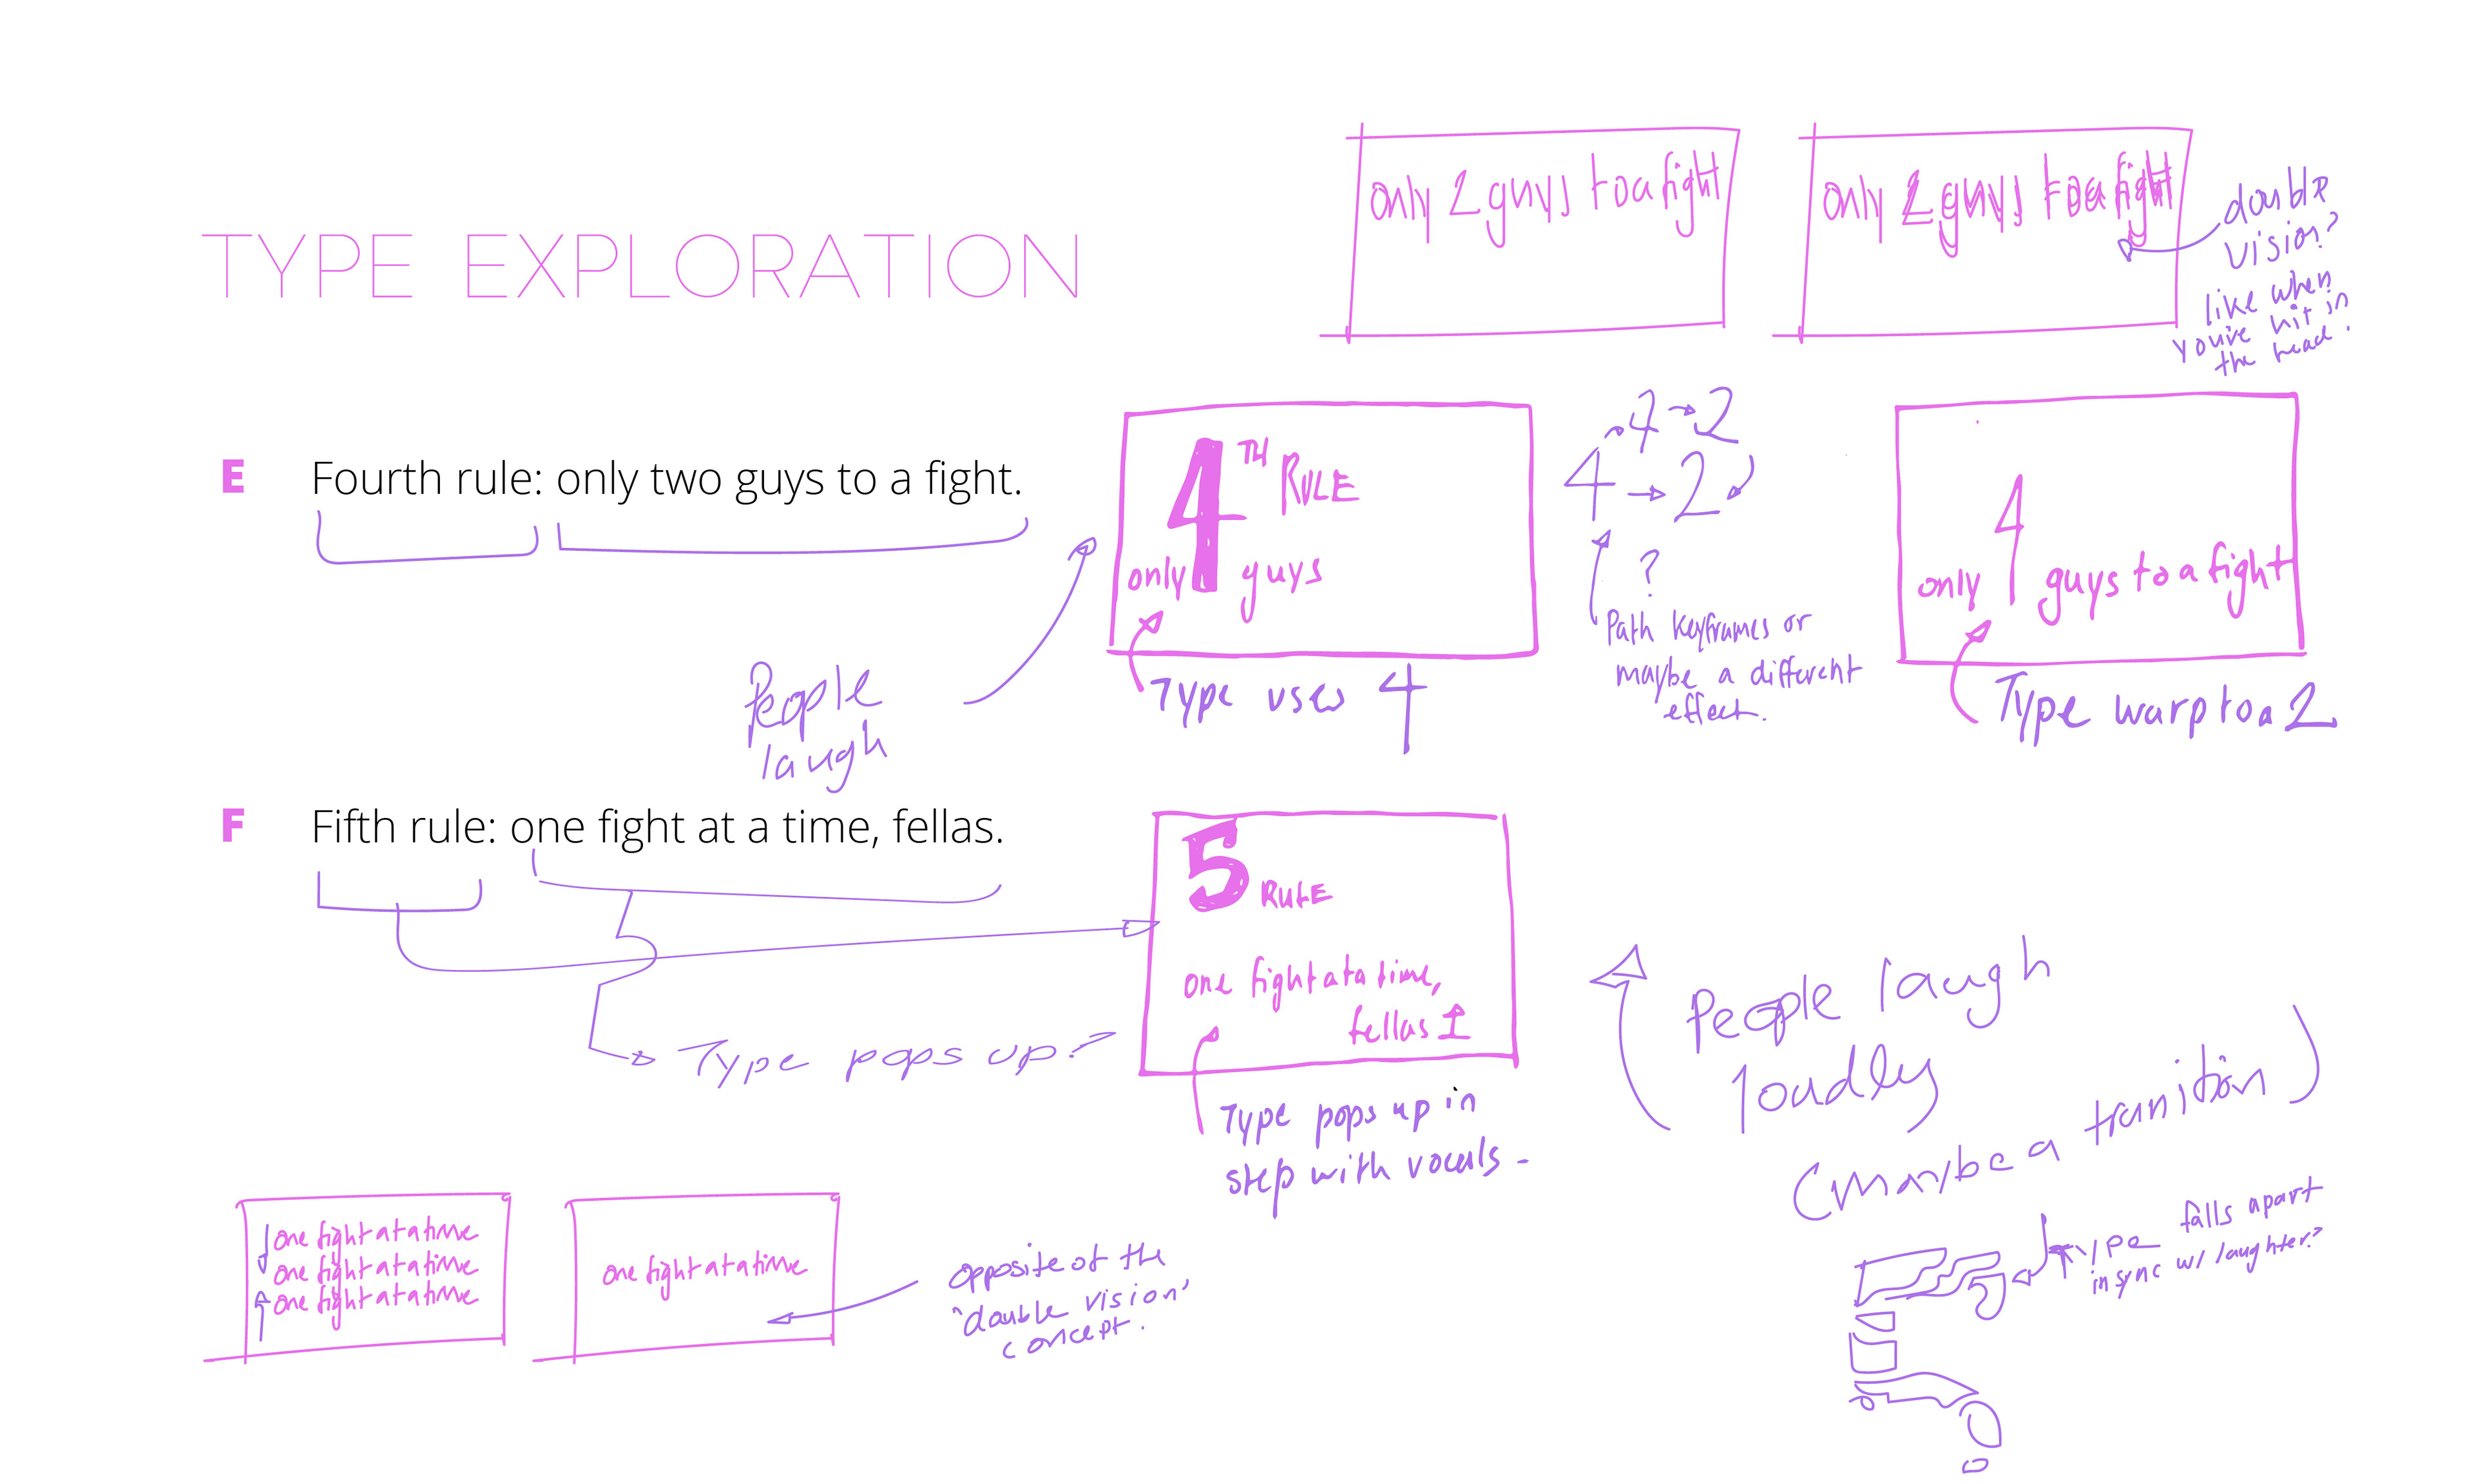 TYPE EXPLORATION
only 2 guys to a fight
only 2 guys to a fight
double
vision?
like when
you're hit in
the head.
E
Fourth rule: only two guys to a fight.
4 TH
RULE
only guys
Type uses 4
4 → 2
4 → 2
?
Path keyframes or
maybe a different
effect.
4
only guys to a fight
Type warp to a 2
People
laugh
F
Fifth rule: one fight at a time, fellas.
5 RULE
one fight at a time,
fellas
Type pops up?
Type pops up in
step with vocals -
People laugh
loudly
(maybe a transition)
falls apart
in sync w/ laughter?
one fight at a time
one fight at a time
one fight at a time
one fight at a time
opposite of the
"double vision"
concept.